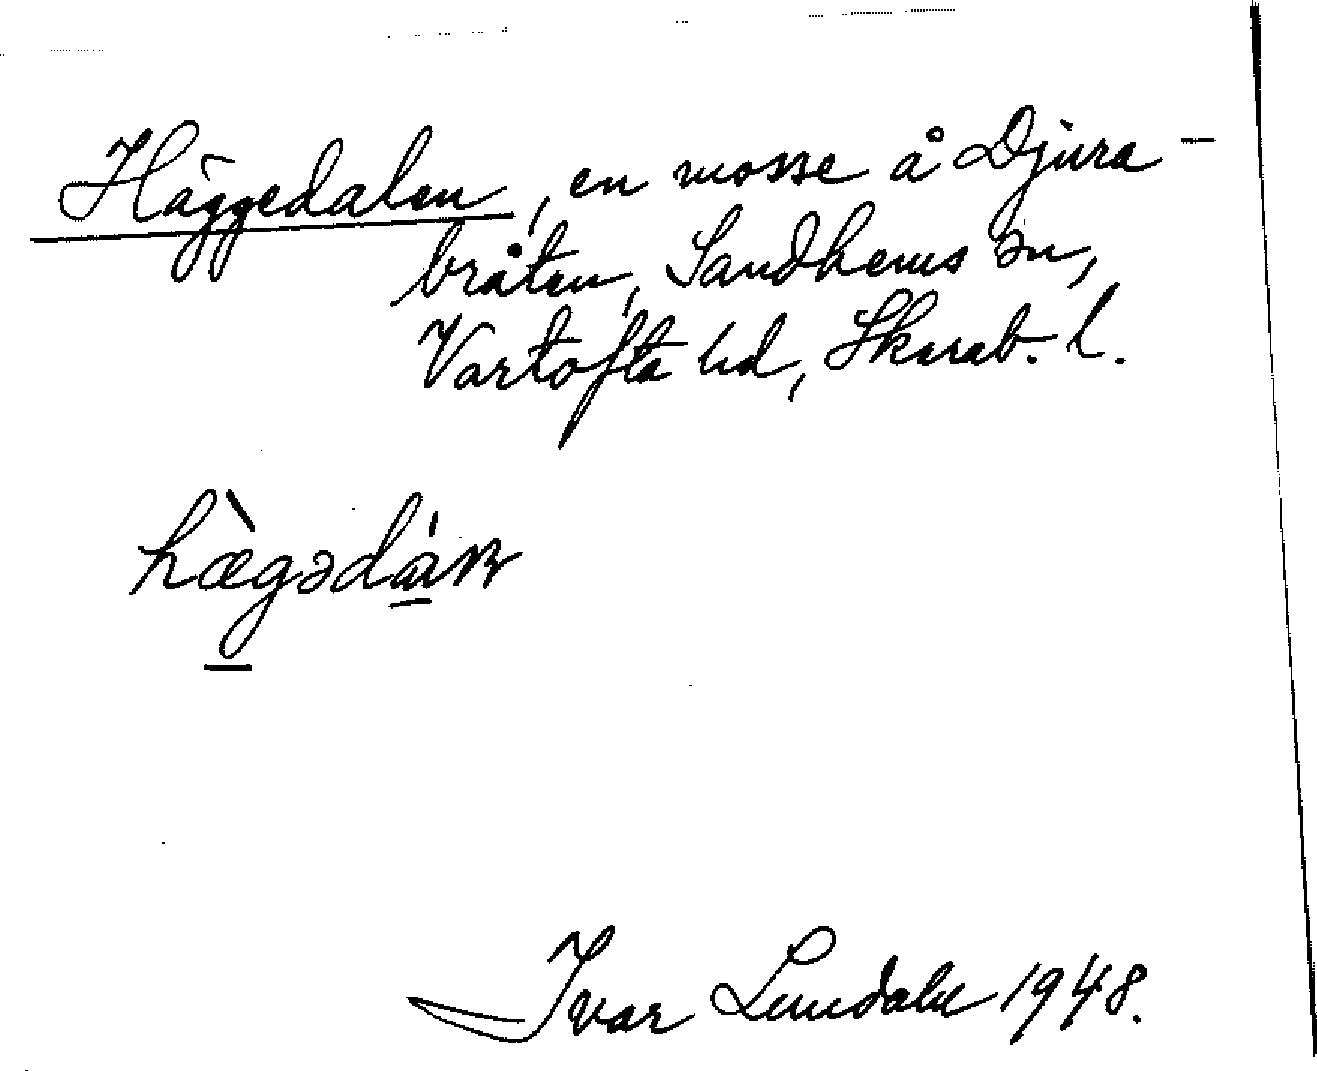 Häggedalen, en mosse å Djura-
bråten, Sandhems sn,
Vartofta hd, Skarab. l.
hæ̀gədáln
Ivar Lundahl 1948.